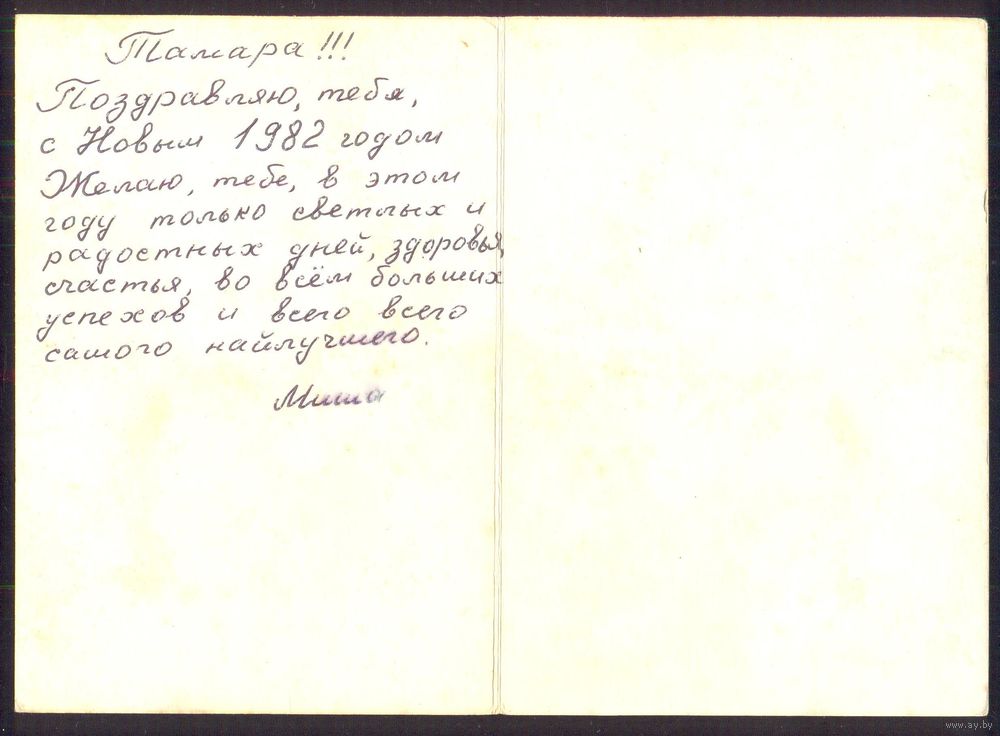 Тамара!!!
Поздравляю, тебя,
с Новым 1982 годом
Желаю, тебе, в этом
году только светлых и
радостных дней, здоровья,
счастья, во всём больших
успехов и всего всего
самого найлучшего.
Миша
www.ay.by